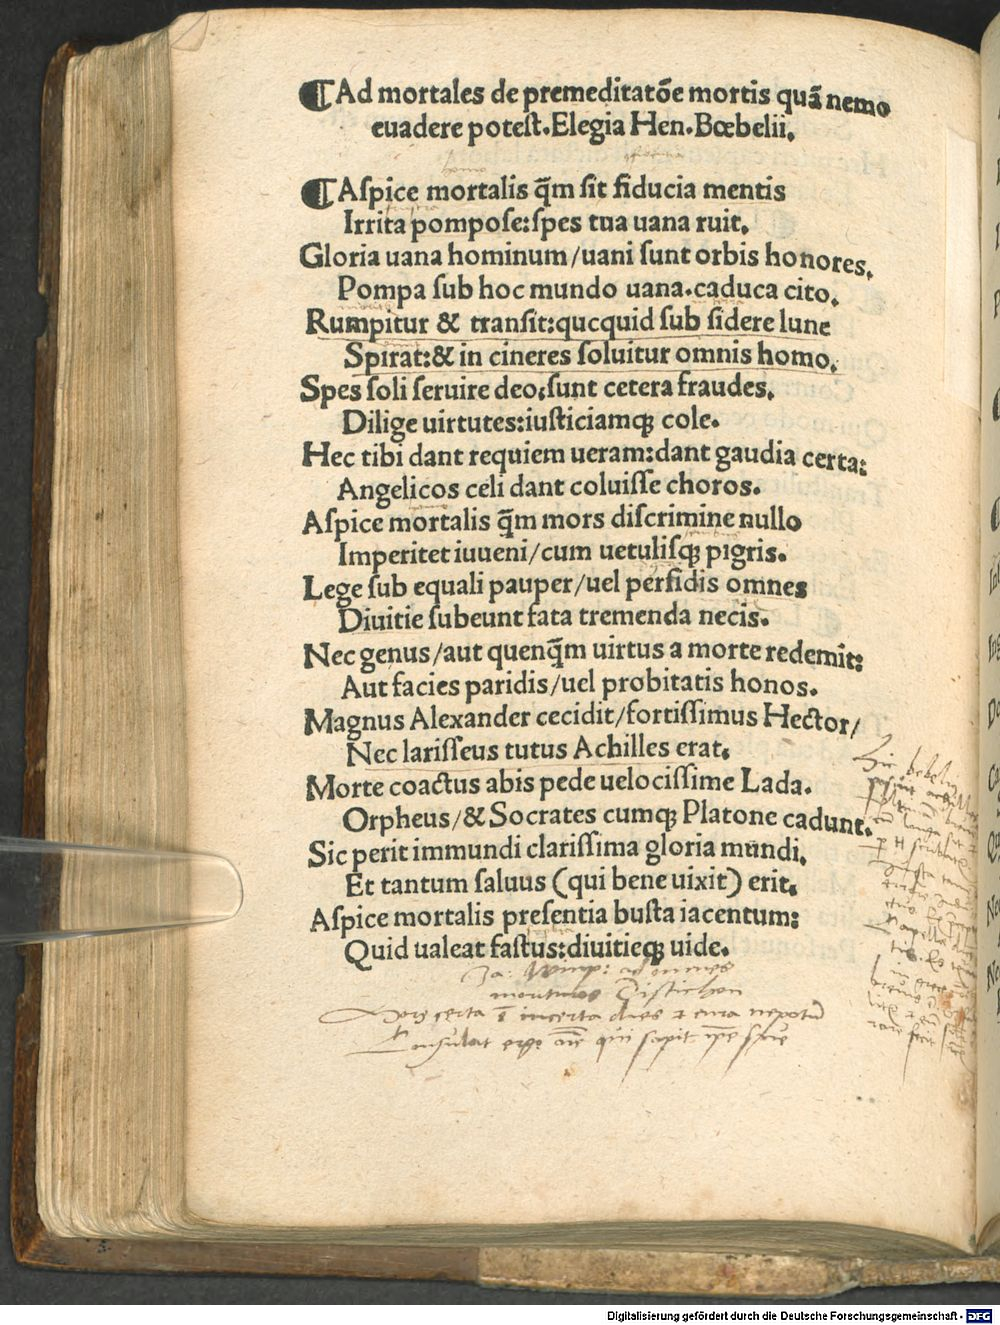 ¶Ad mortales de premeditatōe mortis quā nemo
euadere potest. Elegia Hen. Bœbelii.
¶Aſpice mortalis q̄m ſit fiducia mentis
Irrita pompoſe: ſpes tua uana ruit.
Gloria uana hominum/uani ſunt orbis honores.
Pompa ſub hoc mundo uana. caduca cito.
Rumpitur & tranſit: qucquid ſub ſidere lune
Spirat: & in cineres ſoluitur omnis homo.
Spes ſoli ſeruire deo: ſunt cetera fraudes.
Dilige uirtutes: iuſticiamqꝫ cole.
Hec tibi dant requiem ueram: dant gaudia certa:
Angelicos celi dant coluiſſe choros.
Aſpice mortalis q̄m mors diſcrimine nullo
Imperitet iuueni/cum uetulisqꝫ pigris.
Lege ſub equali pauper/uel perfidis omnes
Diuitie ſubeunt fata tremenda necis.
Nec genus/aut quenq̄m uirtus a morte redemit:
Aut facies paridis/uel probitatis honos.
Magnus Alexander cecidit/fortiſſimus Hector/
Nec lariſſeus tutus Achilles erat.
Morte coactus abis pede uelociſſime Lada.
Orpheus/& Socrates cumqꝫ Platone cadunt.
Sic perit immundi clariſſima gloria mundi.
Et tantum ſaluus (qui bene uixit) erit.
Aſpice mortalis preſentia buſta iacentum:
Quid ualeat faſtus: diuitieqꝫ uide.
Ja: Wimp: ad omnes
morituros Distichon
Mors certa ē incerta dies
ergo qui sapit
Digitalisierung gefördert durch die Deutsche Forschungsgemeinschaft - DFG